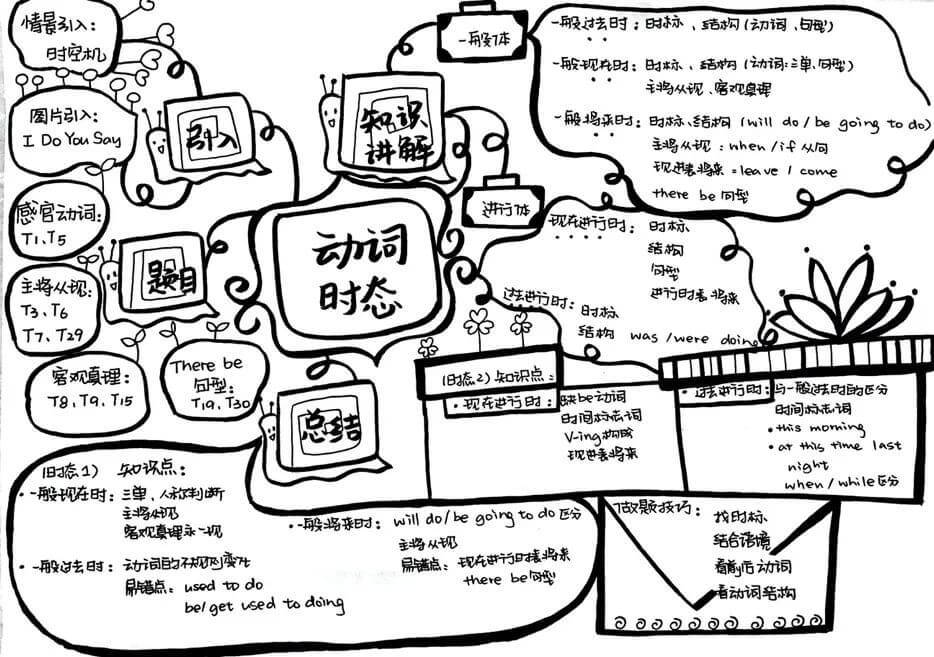 动词
时态
引入
情景引入：
时空机
图片引入：
I Do You Say
知识
讲解
一般体
一般过去时：时标、结构（动词、句型）
一般现在时：时标、结构（动词：三单、句型）
主将从现、客观真理
一般将来时：时标、结构（will do/be going to do）
主将从现：when/if 从句
现进表将来=leave/come
there be 句型
进行体
现在进行时：时标
结构
句型
进行时表将来
过去进行时：时标
结构 was/were doing
题目
感官动词：
T1、T5
主将从现：
T3、T6
T7、T29
客观真理：
T8、T9、T15
There be
句型：
T19、T30
总结
（时态1）知识点：
·一般现在时：三单、人称判断
主将从现
客观真理永一现
·一般过去时：动词的不规则变化
易错点：used to do
be/get used to doing
·一般将来时：will do/be going to do区分
主将从现
易错点：现在进行时表将来
there be句型
（时态2）知识点：
·现在进行时：缺be动词
时间标志词
V-ing构成
现进表将来
·过去进行时：与一般过去时的区分
时间标志词
·this morning
·at this time last
night
when/while区分
做题技巧：找时标
结合语境
看前后动词
看动词结构